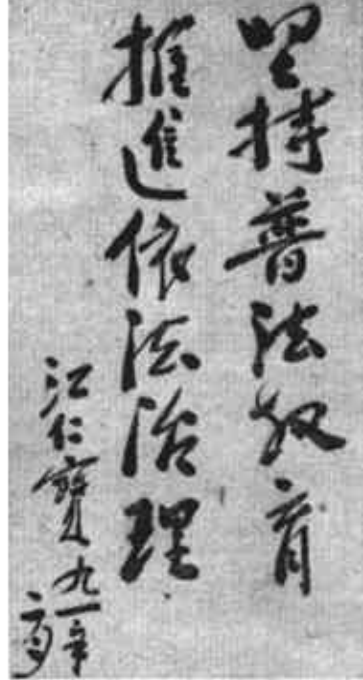 坚持普法教育
推進依法治理
江仁寶九一年